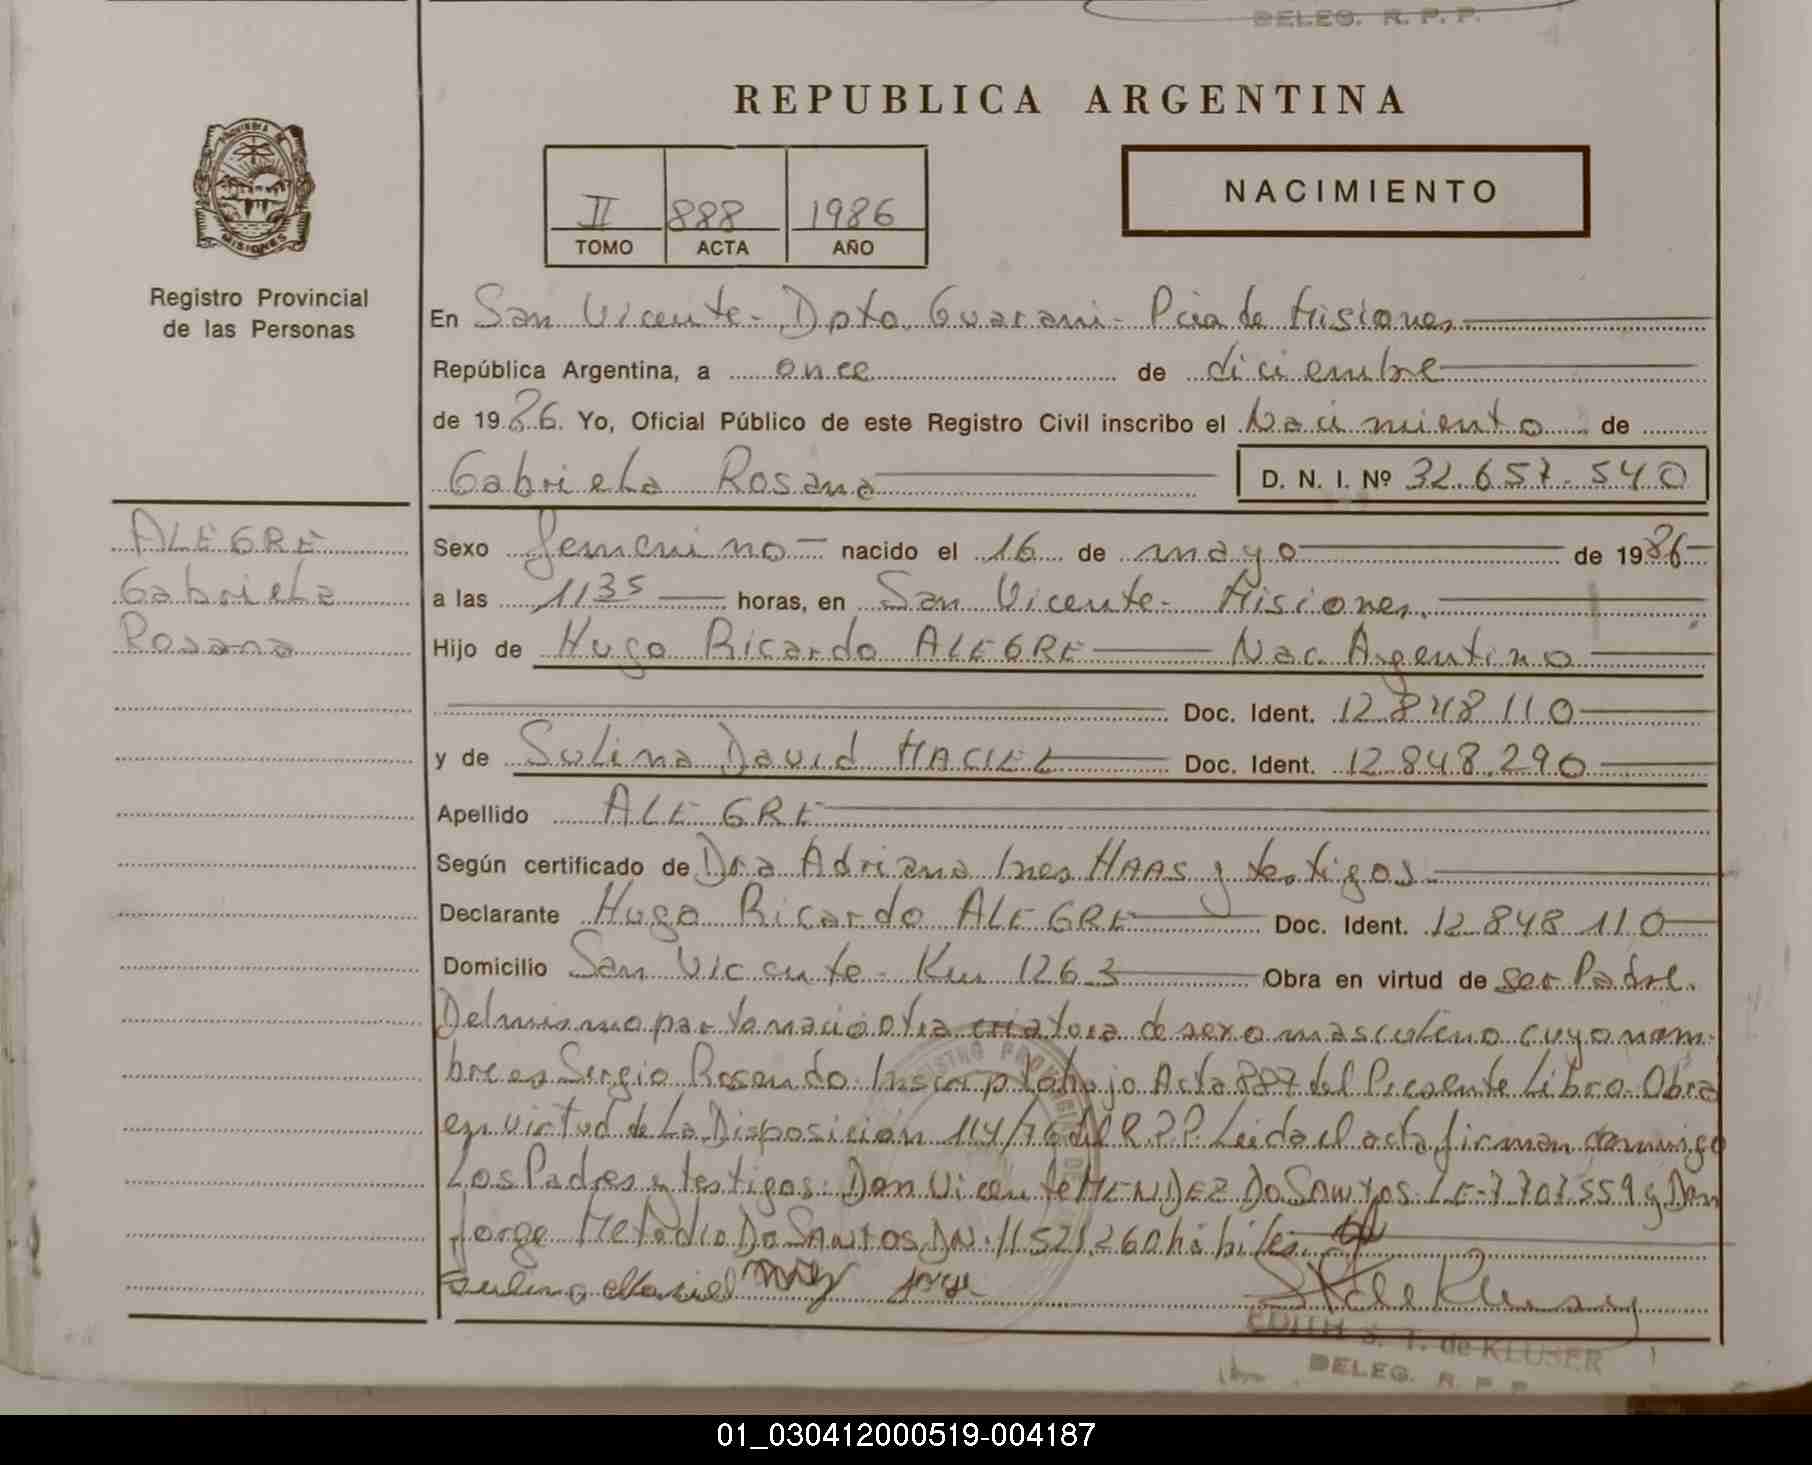 DELEG. R. P. P.
REPUBLICA ARGENTINA
PROVINCIA DE
MISIONES
II 888 1986
TOMO ACTA AÑO
NACIMIENTO
Registro Provincial
de las Personas
En San Vicente - Dpto. Guarani - Pcia de Misiones
República Argentina, a once de diciembre
de 1986. Yo, Oficial Público de este Registro Civil inscribo el Nacimiento de
Gabriela Rosana D. N. I. Nº 32.657.540
ALEGRE
Gabriela
Rosana
Sexo femenino nacido el 16 de mayo de 1986
a las 1135 horas, en San Vicente - Misiones.
Hijo de Hugo Ricardo ALEGRE Nac. Argentino
Doc. Ident. 12.848.110
y de Sulima David MACIEL Doc. Ident. 12.848.290
Apellido ALEGRE
Según certificado de Dra Adriana Ines HAAS y testigos
Declarante Hugo Ricardo ALEGRE Doc. Ident. 12.848.110
Domicilio San Vicente - Km 1263 Obra en virtud de ser Padre.
Del mismo parto nacio otra criatura de sexo masculino cuyo nom-
bre es Sergio Rosendo. Inscripto bajo Acta 887 del Presente Libro. Obra
en virtud de La Disposición 114/76 del R.P.P. Leida el acta firman conmigo
Los Padres y testigos: Don Vicente MENDEZ DO SANTOS LE-7.707.559 y Don
Jorge Metodio DO SANTOS DN. 11.521.260 habiles.
Maciel Jorge
EDITH S. T. de KLUSER
DELEG. R. P. P.
01_030412000519-004187